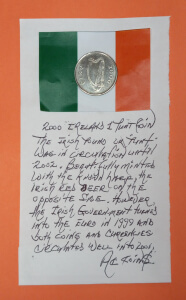 2000 IRELAND 1 PUNT COIN
THE IRISH POUND OR "PUNT"
WAS IN CIRCULATION UNTIL
2002. BEAUTIFULLY MINTED
WITH THE KNOWN HARP, THE
IRISH RED DEER ON THE
OPPOSITE SIDE. HOWEVER,
THE IRISH GOVERNMENT TURNED
INTO THE EURO IN 1999 AND
BOTH COINS AND CURRENCIES
CIRCULATED WELL INTO